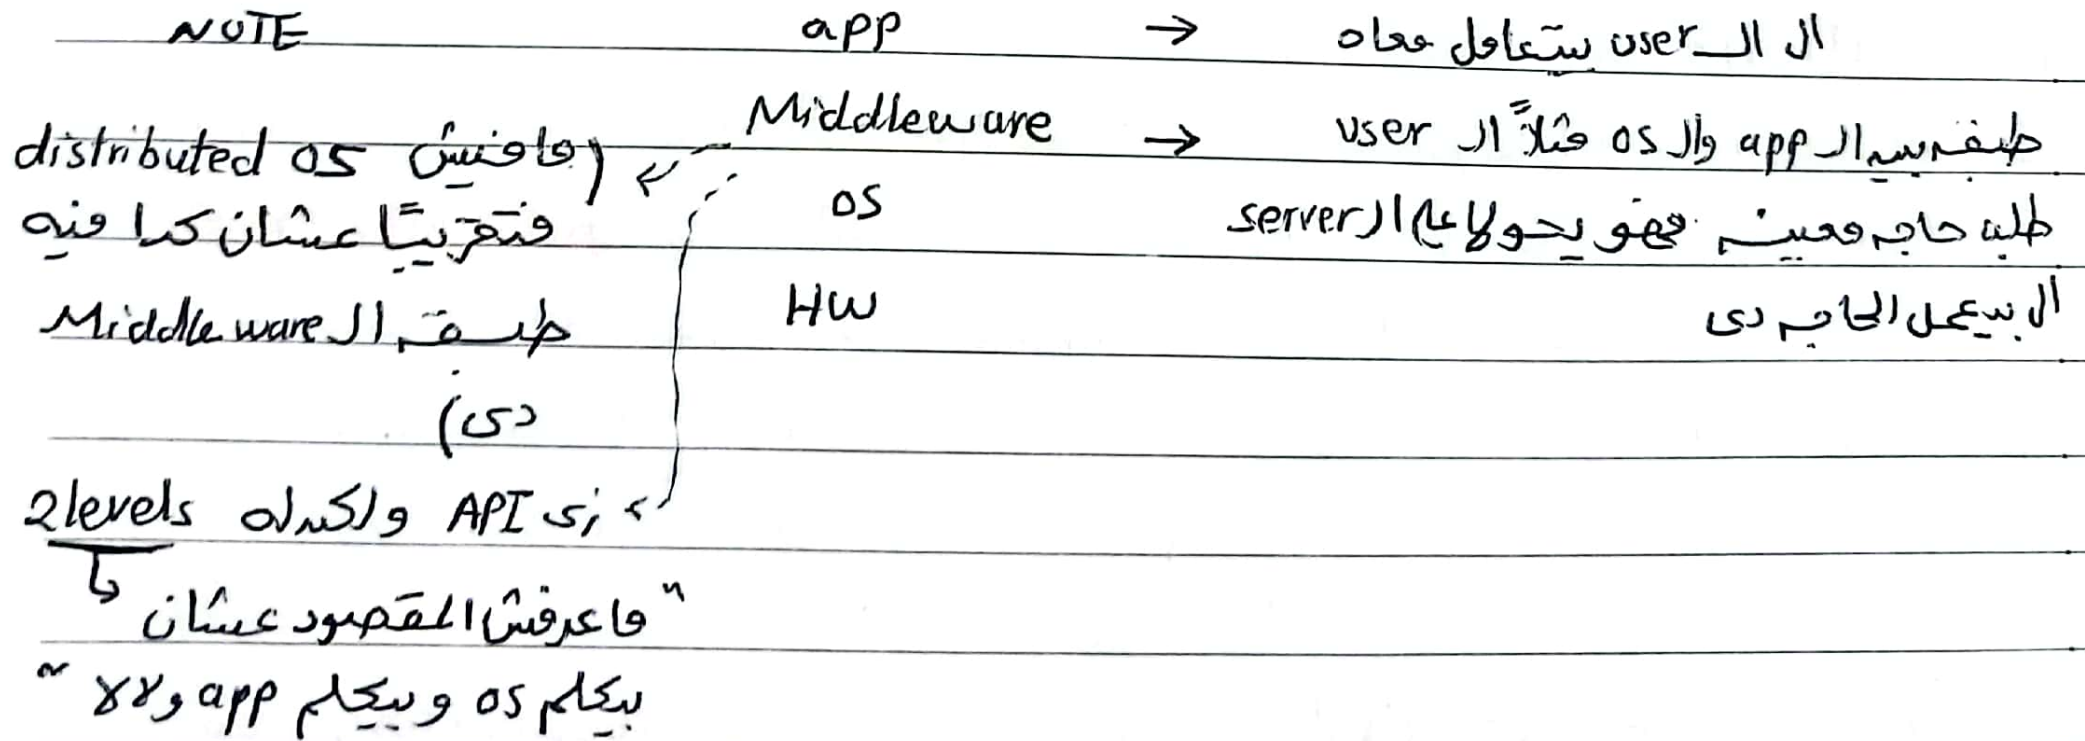 NOTE
app → ال الـ user بيتعامل معاه
Middleware → طبقه بين الـ app والـ os مثلاً الـ user
طلب حاجه معينه فهو يحولها علي الـ server
ال بيعمل الحاجه دى
os
HW
(مافيش distributed os
فتقريبًا عشان كدا فيه
طبقة الـ Middleware
دى)
زى API ولكن له 2 levels
"ماعرفش المقصود عشان
بيكلم os وبيكلم app ولا لا"